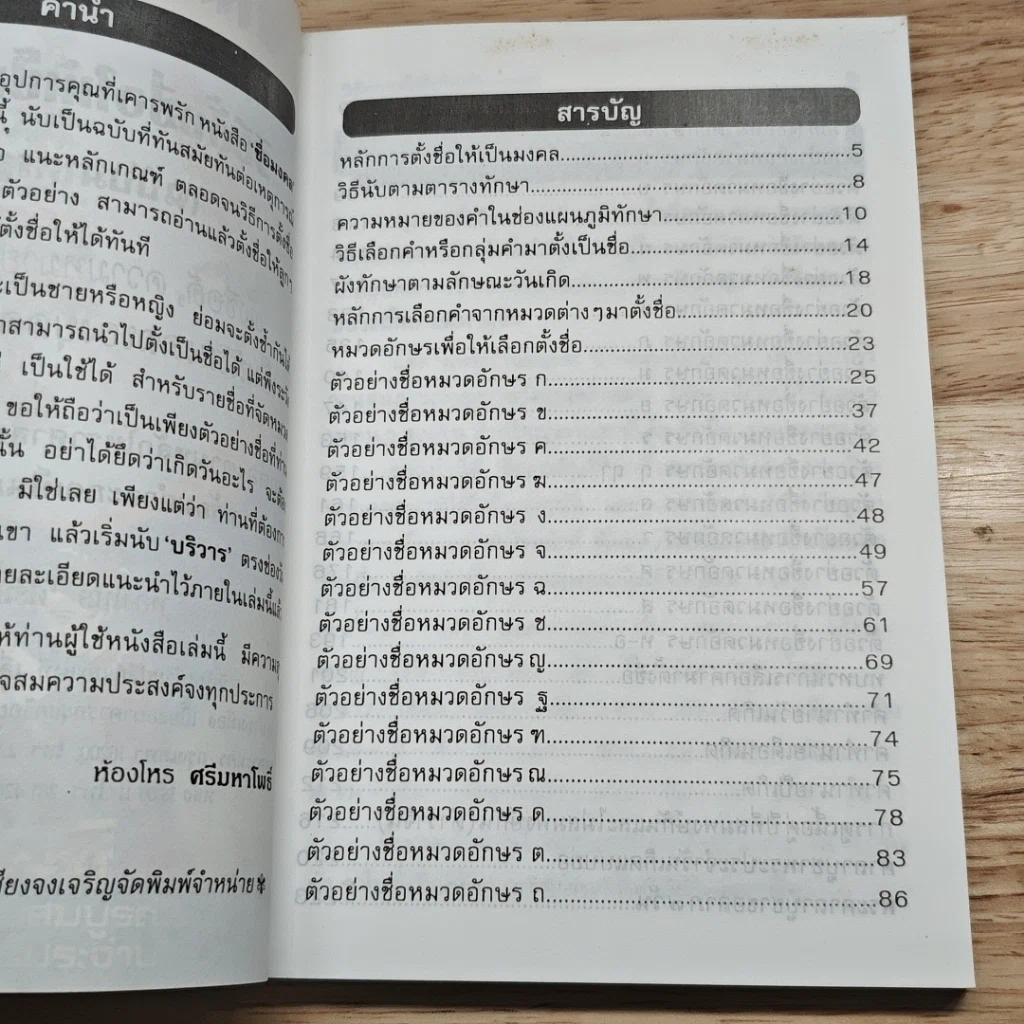 คำนำ
อุปการคุณที่เคารพรัก หนังสือ 'ชื่อมงคล'
นี้ นับเป็นฉบับที่ทันสมัยทันต่อเหตุการณ์
แนะหลักเกณฑ์ ตลอดจนวิธีการตั้งชื่อ
ตัวอย่าง สามารถอ่านแล้วตั้งชื่อให้ลูกๆ
ตั้งชื่อให้ได้ทันที
ะเป็นชายหรือหญิง ย่อมจะตั้งซ้ำกันได้
าสามารถนำไปตั้งเป็นชื่อได้ แต่พึงระวัง
เป็นใช้ได้ สำหรับรายชื่อที่จัดหมวด
ขอให้ถือว่าเป็นเพียงตัวอย่างชื่อที่ท่าน
นั้น อย่าได้ยึดว่าเกิดวันอะไร จะต้อง
มิใช่เลย เพียงแต่ว่า ท่านที่ต้องการ
เขา แล้วเริ่มนับ 'บริวาร' ตรงช่องวัน
ยละเอียดแนะนำไว้ภายในเล่มนี้แล้ว
ห้ท่านผู้ใช้หนังสือเล่มนี้ มีความสุ
จสมความประสงค์จงทุกประการ
ห้องโหร ศรีมหาโพธิ์
ียงจงเจริญจัดพิมพ์จำหน่าย
สารบัญ
หลักการตั้งชื่อให้เป็นมงคล 5
วิธีนับตามตารางทักษา 8
ความหมายของคำในช่องแผนภูมิทักษา 10
วิธีเลือกคำหรือกลุ่มคำมาตั้งเป็นชื่อ 14
ผังทักษาตามลักษณะวันเกิด 18
หลักการเลือกคำจากหมวดต่างๆมาตั้งชื่อ 20
หมวดอักษรเพื่อให้เลือกตั้งชื่อ 23
ตัวอย่างชื่อหมวดอักษร ก 25
ตัวอย่างชื่อหมวดอักษร ข 37
ตัวอย่างชื่อหมวดอักษร ค 42
ตัวอย่างชื่อหมวดอักษร ฆ 47
ตัวอย่างชื่อหมวดอักษร ง 48
ตัวอย่างชื่อหมวดอักษร จ 49
ตัวอย่างชื่อหมวดอักษร ฉ 57
ตัวอย่างชื่อหมวดอักษร ช 61
ตัวอย่างชื่อหมวดอักษร ญ 69
ตัวอย่างชื่อหมวดอักษร ฐ 71
ตัวอย่างชื่อหมวดอักษร ฑ 74
ตัวอย่างชื่อหมวดอักษร ณ 75
ตัวอย่างชื่อหมวดอักษร ด 78
ตัวอย่างชื่อหมวดอักษร ต 83
ตัวอย่างชื่อหมวดอักษร ถ 86